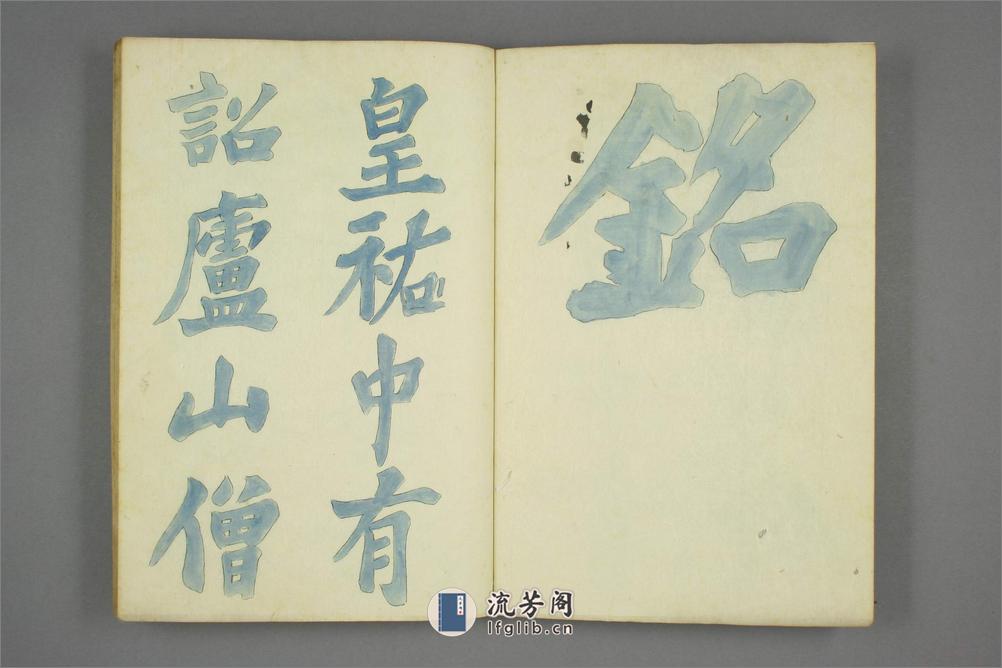 銘
皇祐中有
詔廬山僧
流芳阁
lfglib.cn